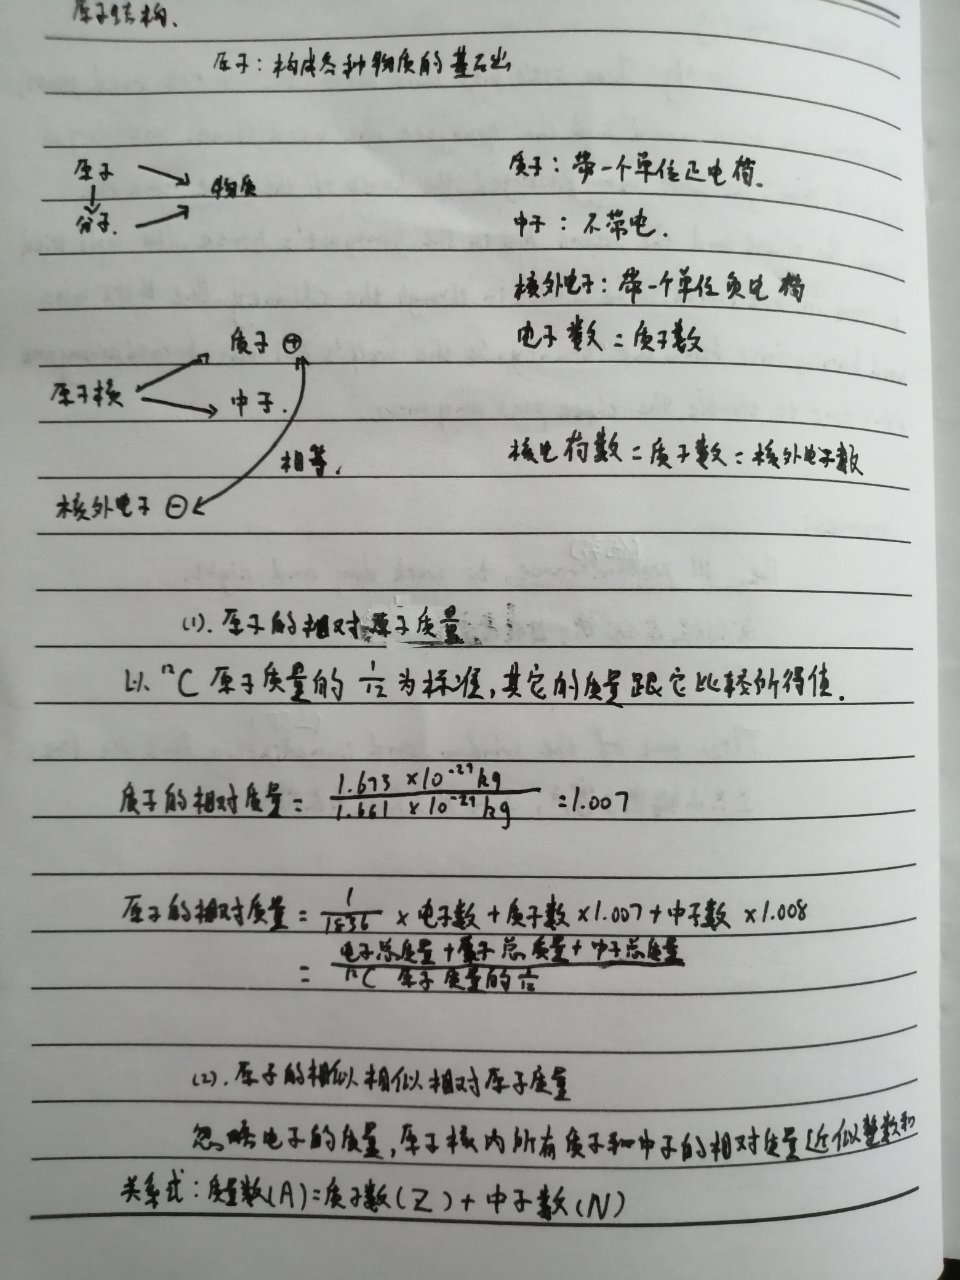 原子结构.
原子：构成各种物质的基石出
原子
物质
分子.
质子：带一个单位正电荷.
中子：不带电.
核外电子：带一个单位负电荷
电子数=质子数
质子 ⊕
原子核
中子.
相等.
核外电子 ⊖
核电荷数=质子数=核外电子数
(1).原子的相对原子质量.
以 ¹²C 原子质量的 1/12 为标准,其它的质量跟它比较所得值.
质子的相对质量= 1.673×10⁻²⁷kg / 1.661×10⁻²⁷kg =1.007
原子的相对质量= 1/1836 ×电子数+质子数×1.007+中子数×1.008
= 电子总质量+质子总质量+中子总质量 / ¹²C 原子质量的 1/12
(2).原子的相似相似相对原子质量
忽略电子的质量,原子核内所有质子和中子的相对质量近似整数和
关系式：质量数(A)=质子数(Z)+中子数(N)